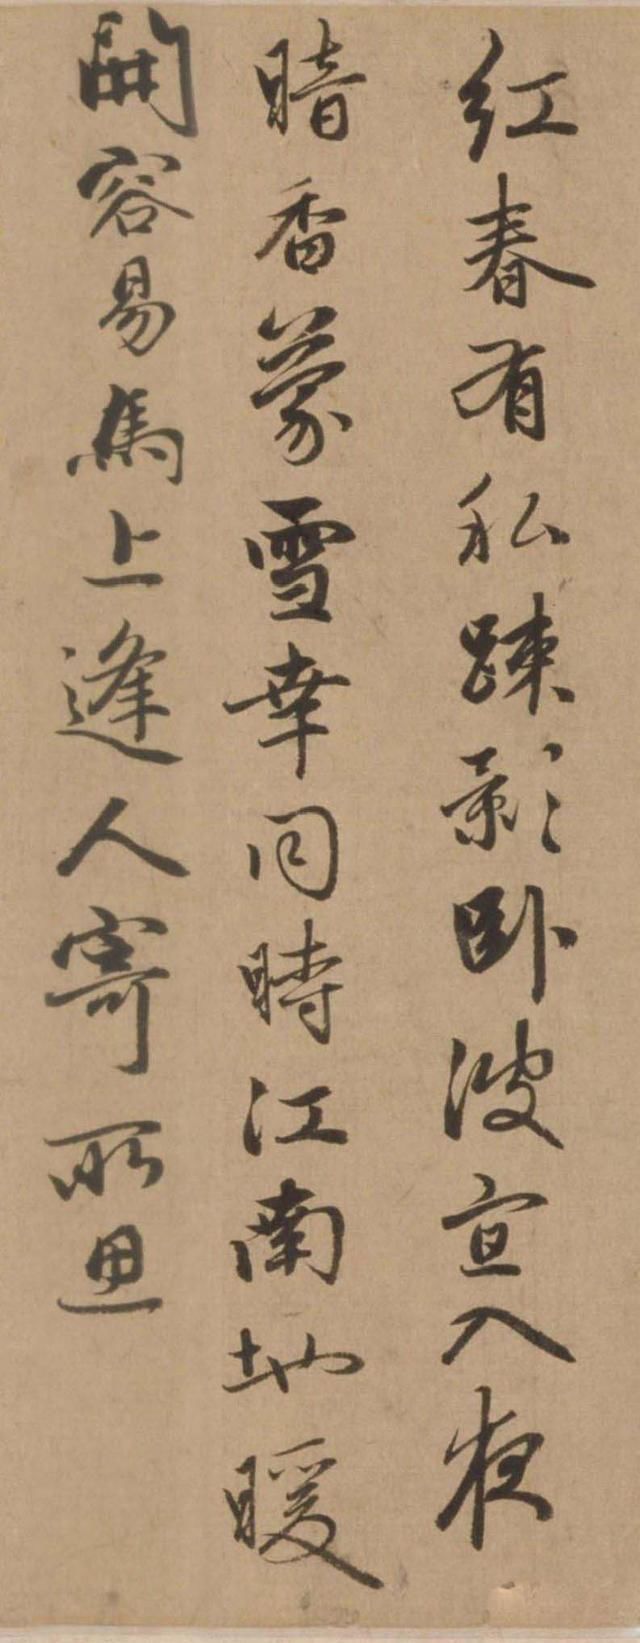 紅春有私踈影卧波宜入夜
暗香蒙雪幸同時江南地暖
開容易馬上逢人寄所思